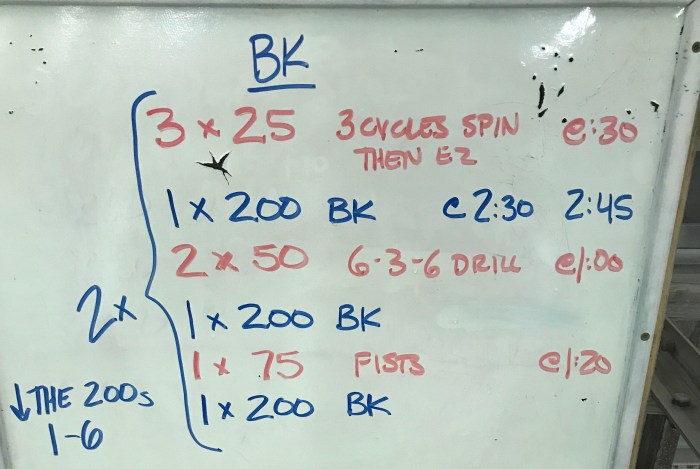 BK
3 x 25 3 CYCLES SPIN @:30
THEN EZ
1 x 200 BK @ 2:30 2:45
2 x 50 6-3-6 DRILL @1:00
2x
1 x 200 BK
1 x 75 FISTS @1:20
↓ THE 200s
1 x 200 BK
1-6